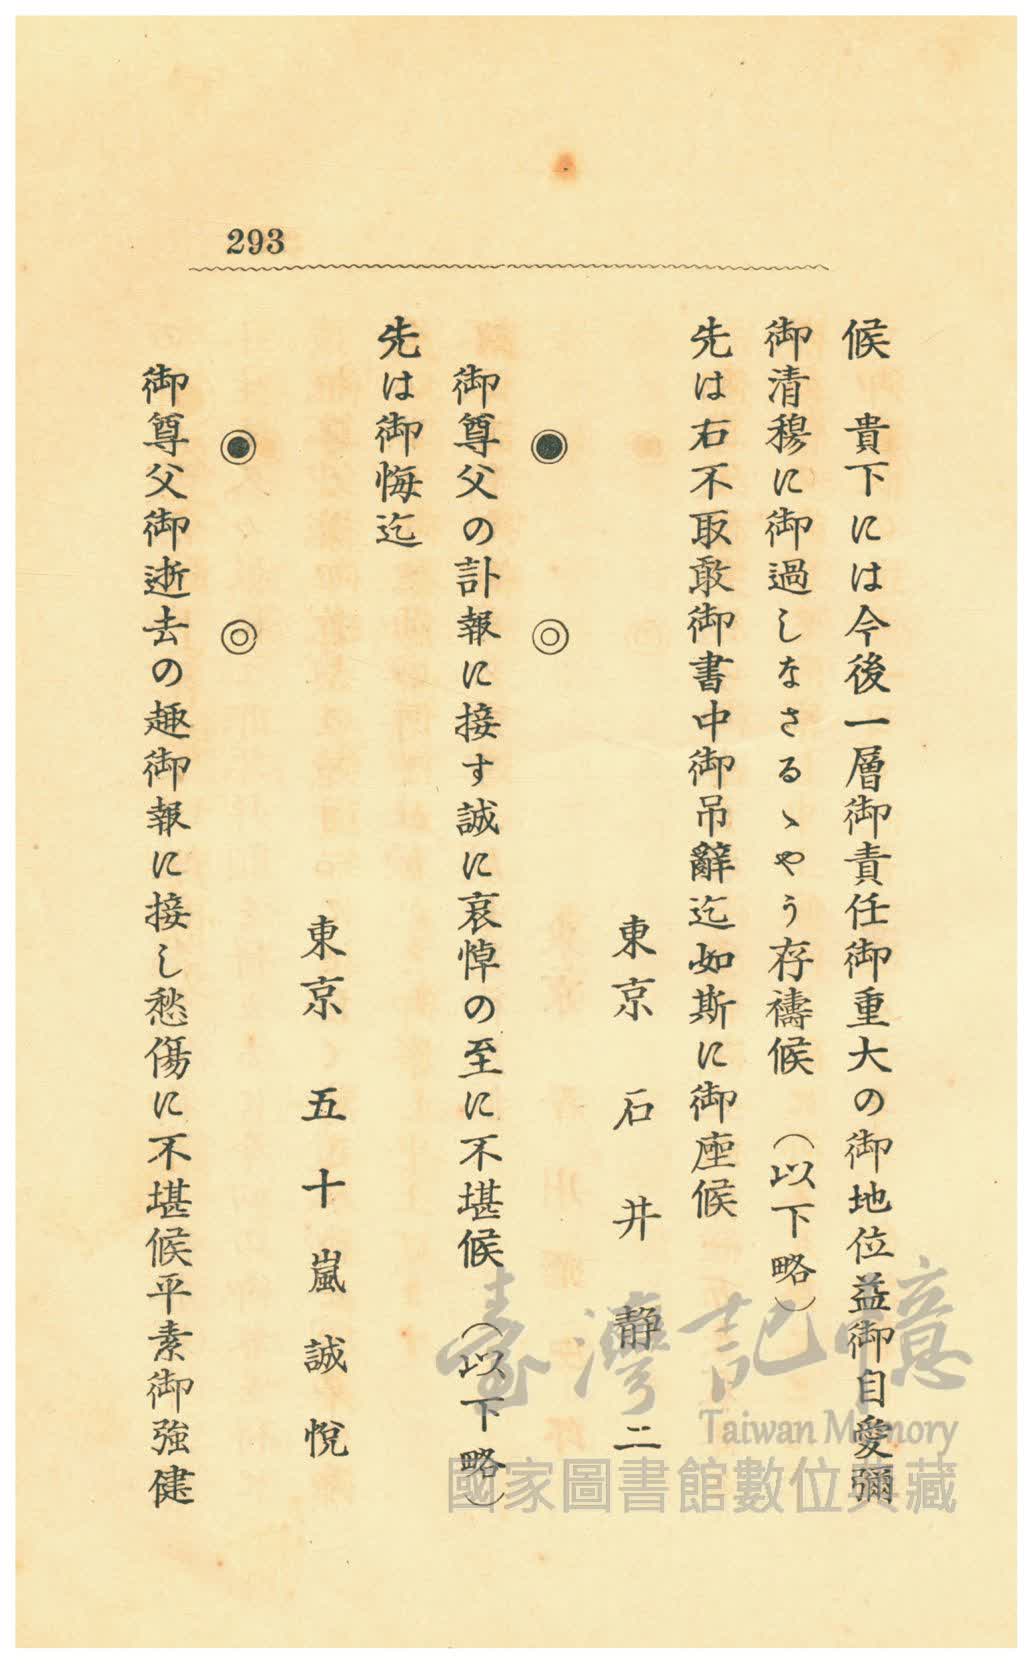 293
候　貴下には今後一層御責任御重大の御地位益御自愛彌
御清穆に御過しなさるゝやう存禱候　（以下略）
先は右不取敢御書中御吊辭迄如斯に御座候
東京　石井靜二
◉　◎
御尊父の訃報に接す誠に哀悼の至に不堪候　（以下略）
先は御悔迄
東京　五十嵐誠悅
◉　◎
御尊父御逝去の趣御報に接し愁傷に不堪候平素御強健
臺灣記憶
Taiwan Memory
國家圖書館數位典藏